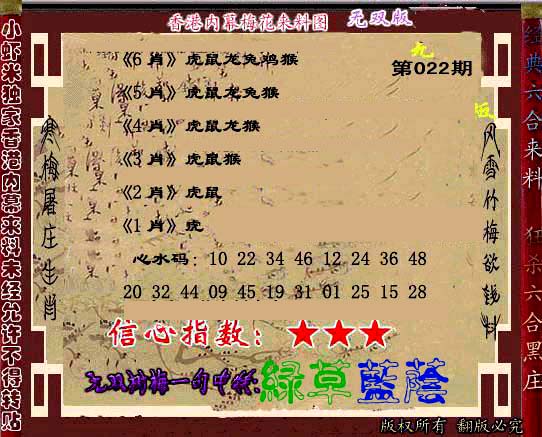 香港内幕梅花来料图 无双版
九
第022期
《6 肖》虎鼠龙兔鸡猴
《5 肖》虎鼠龙兔猴
《4 肖》虎鼠龙猴
《3 肖》虎鼠猴
《2 肖》虎鼠
《1 肖》虎
心水码：10 22 34 46 12 24 36 48
20 32 44 09 45 19 31 01 25 15 28
信心指数：★★★
无双 梅一句中特:緑草藍蔭
版权所有 翻版必究
小虾米独家香港内幕来料未经允许不得转贴
寒梅屠庄生肖
风雪竹梅欲 料
经典六合来料
狂杀六合黑庄